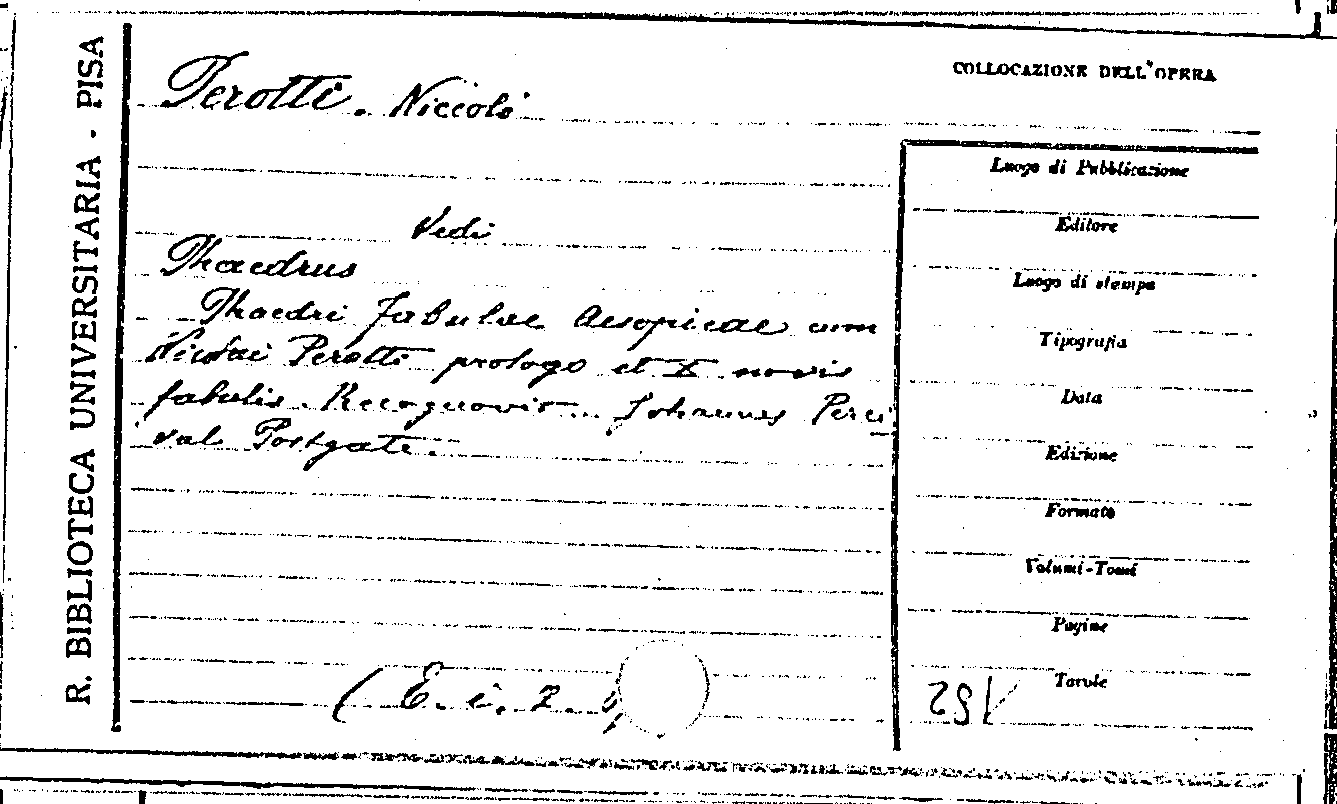 R. BIBLIOTECA UNIVERSITARIA - PISA
Perotti. Niccolò
COLLOCAZIONE DELL'OPERA
Vedi
Phaedrus
Phaedri fabulae Aesopicae cum
Nicolai Perotti prologo et X novis
fabulis. Recognovit Johannes Perci
val Postgate.
(E. i. 2.
Luogo di Pubblicazione
Editore
Luogo di stampa
Tipografia
Data
Edizione
Formato
Volumi-Tomi
Pagine
Tavole